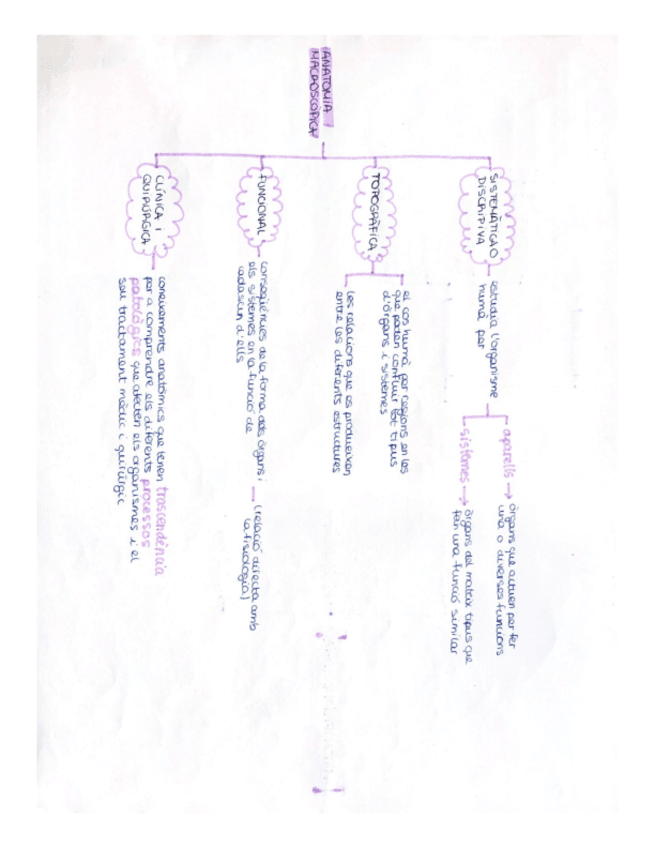 ANATOMIA
MACROSCÒPICA
SISTEMÀTICA O
DISCRIPIVA
estudia l'organisme
humà per
aparells → òrgans que actuen per fer
una o diverses funcions
sistemes → òrgans del mateix tipus que
fan una funció similar
TOPOGRÀFICA
el cos humà per regions en les
que poden confluir tot tipus
d'òrgans i sistemes
les relacions que es produeixen
entre les diferents estructures
FUNCIONAL
conseqüències de la forma dels òrgans i
els sistemes en la funció de
cadascun d'ells
→ (relació directa amb
la fisiologia)
CLÍNICA i
QUIRÚRGICA
coneixements anatòmics que tenen trascendència
per a comprendre els diferents processos
patològics que afecten els organismes i el
seu tractament mèdic i quirúrgic